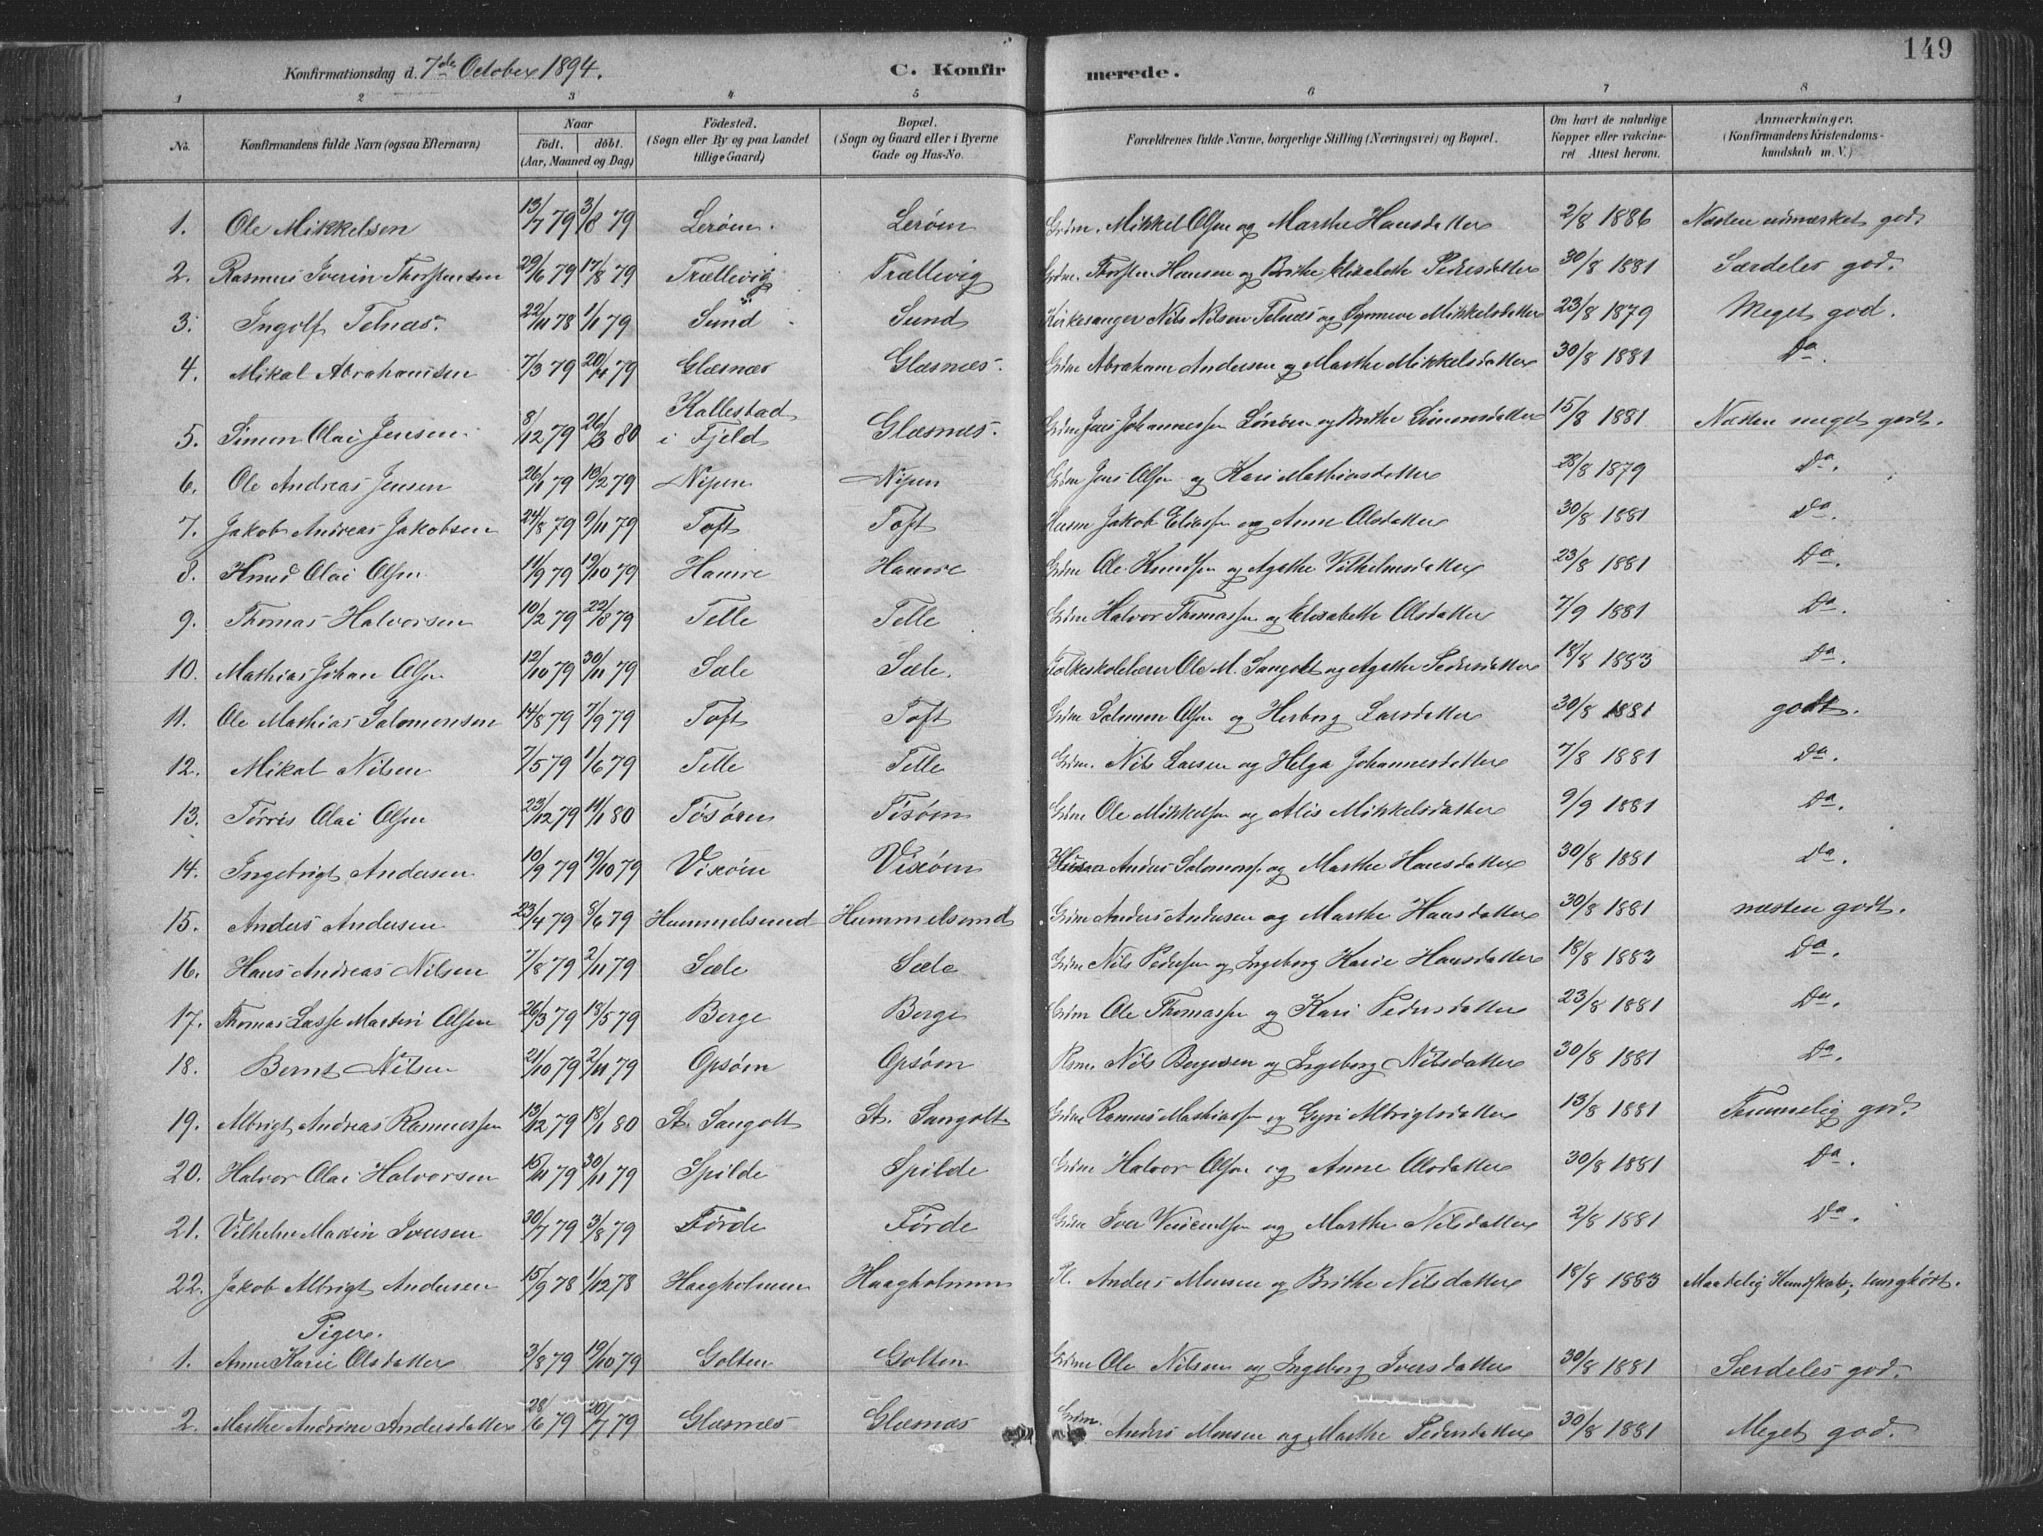 149
Konfirmationsdag d. 7de October 1894. C. Konfirmerede.
1 2 3 4 5 6 7 8
No. Konfirmandens fulde Navn (ogsaa Efternavn) Naar födt. döbt. (Aar, Maaned og Dag) Födested. (Sogn eller By og paa Landet tillige Gaard) Bopæl. (Sogn og Gaard eller i Byerne Gade og Hus-No. Forældrenes fulde Navne, borgerlige Stilling (Næringsvei) og Bopæl. Om havt de naturlige Kopper eller vakcineret Attest herom. Anmærkninger. (Konfirmandens Kristendomskundskab m. V.)
1. Ole Mikkelsen 13/7 79 3/8 79 Lerøen. Lerøen Grdm. Mikkel Olsen og Marthe Hansdatter 2/8 1886 Næsten udmærket god
2. Rasmus Iverin Thorstensen 29/6 79 17/8 79 Trællevig Trællevig Grdm. Thorsten Hansen og Brithe Elisabeth Pedersdatter 30/8 1881 Særdeles god.
3. Ingolf Telnæs. 22/11 78 1/1 79 Sund Sund Kirkesanger Nils Nilsen Telnæs og Synneve Mikkelsdatter 23/8 1879 Meget god.
4. Mikal Abrahamsen 7/3 79 20/4 79 Glæsnæs Glæsnæs. Grdm Abraham Andersen og Marthe Mikkelsdatter 30/8 1881 Da.
5. Simon Olai Jensen 8/12 79 26/3 80 Kallestad i Fjeld Glæsnæs. Grdm Jens Johannessen og Brithe Simonsdatter 15/8 1881 Næsten meget godt.
6. Ole Andreas Jensen 26/1 79 13/2 79 Nipen Nipen Grdm Jens Olsen og Kari Mathiasdatter 28/8 1879 Da.
7. Jakob Andreas Jakobsen 24/8 79 9/11 79 Toft Toft Husm Jakob Eliassen og Anne Olsdatter 30/8 1881 Da.
8. Knud Olai Olsen 11/9 79 19/10 79 Hamre Hamre Grdm Ole Knudsen og Agathe Vilhelmsdatter 23/8 1881 Da.
9. Thomas Halvorsen 10/2 79 22/8 79 Telle Telle Grdm Halvor Thomassen og Elisabeth Olsdatter 7/9 1881 Da.
10. Mathias Johan Olsen 12/10 79 30/11 79 Sæle Sæle. Folkeskolelærer Ole M. Sangolt og Agathe Pedersdatter 18/8 1883 Da.
11. Ole Mathias Salomonsen 14/8 79 7/9 79 Toft Toft Grdm Salomon Olsen og Herborg Larsdatter 30/8 1881 godt.
12. Mikal Nilsen 7/5 79 1/6 79 Telle Telle Grdm. Nils Larsen og Helga Johannesdatter 7/8 1881 Da.
13. Torris Olai Olsen 23/12 79 11/1 80 Tøsøen Tøsøen Grdm Ole Mikkelsen og Alis Mikkelsdatter 9/9 1881 Da.
14. Ingebrigt Andersen 10/9 79 19/10 79 Vixøen Vixøen Husm Anders Salomons. og Marthe Hansdatter 30/8 1881 Da.
15. Anders Andersen 23/4 79 8/6 79 Hummelsund Hummelsund Grdm Anders Andersen og Marthe Hansdatter 30/8 1881 næsten godt.
16. Hans Andreas Nilsen 7/8 79 2/11 79 Sæle Sæle Grdm Nils Pedersen og Ingeborg Karie Hansdatter 18/8 1883 Da.
17. Thomas Lasse Martin Olsen 26/3 79 18/5 79 Berge Berge Grdm Ole Thomassen og Kari Pedersdatter 23/8 1881 Da.
18. Bernt Nilsen 21/10 79 2/11 79 Opsøen Opsøen Nils Børgesen og Ingeborg Nilsdatter 30/8 1881 Da.
19. Albrigt Andreas Rasmussen 13/12 79 18/1 80 St. Sangolt St. Sangolt Grdm Rasmus Mathiassen og Gyri Albrigtsdatter 13/8 1881 Temmelig god.
20. Halvor Olai Halvorsen 15/11 79 30/11 79 Spilde Spilde Grdm Halvor Olsen og Anne Olsdatter 30/8 1881 Da.
21. Vilhelm Maxin Iversen 30/7 79 3/8 79 Førde Førde Grdm Iver Vincentsen og Marthe Nilsdatter 2/8 1881 Da.
22. Jakob Albrigt Andersen 15/9 78 1/12 78 Haagholmen Haagholmen H. Anders Monsen og Brithe Nilsdatter 18/8 1883 Maadelig Kundskab; tunghørt.
Piger.
1. Anne Karie Olsdatter 3/8 79 19/10 79 Golten Golten Grdm Ole Nilsen og Ingeborg Iversdatter 30/8 1881 Særdeles god.
2. Marthe Andrine Andersdatter 28/6 79 20/7 79 Glæsnæs Glæsnæs Grdm. Anders Monsen og Marthe Pedersdatter 30/8 1881 Meget god.